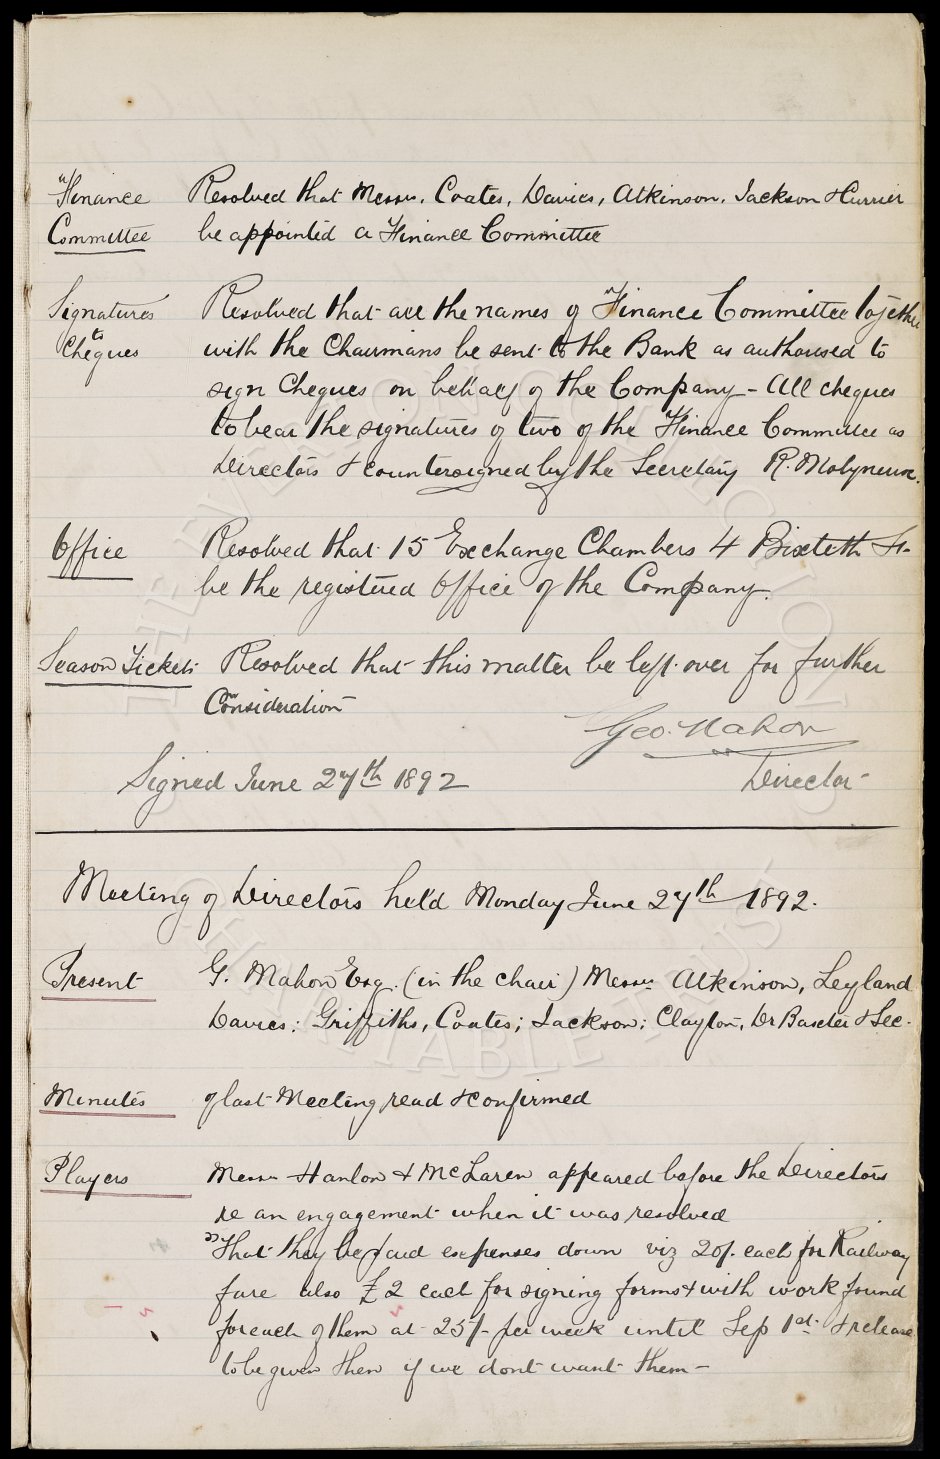 "Finance Resolved that Messrs. Coates, Davies, Atkinson, Jackson & Currier
Committee be appointed a Finance Committee
Signatures Resolved that all the names of "Finance Committee together
to with the Chairmans be sent to the Bank as authorised to
Cheques sign Cheques on behalf of the Company - All cheques
to bear the signatures of two of the Finance Committee as
Directors & countersigned by the Secretary R. Molyneux.
Office Resolved that 15 Exchange Chambers 4 Bixteth St.
be the registered office of the Company.
Season Tickets Resolved that this matter be left over for further
Consideration
Geo. Mahon
Signed June 27th 1892 Director
Meeting of Directors held Monday June 27th 1892.
Present G. Mahon Esq. (in the chair) Messrs Atkinson, Leyland
Davies; Griffiths, Coates; Jackson; Clayton, Dr Baxter & Sec.
Minutes of last Meeting read & confirmed
Players Messrs Hanlon & McLaren appeared before the Directors
re an engagement when it was resolved
That they be paid expenses down viz 20/- each for Railway
fare also £2 each for signing forms & with work found
for each of them at 25/- per week until Sep 1st & release
to be given then if we dont want them -
THE EVERTON COLLECTION
CHARITABLE TRUST